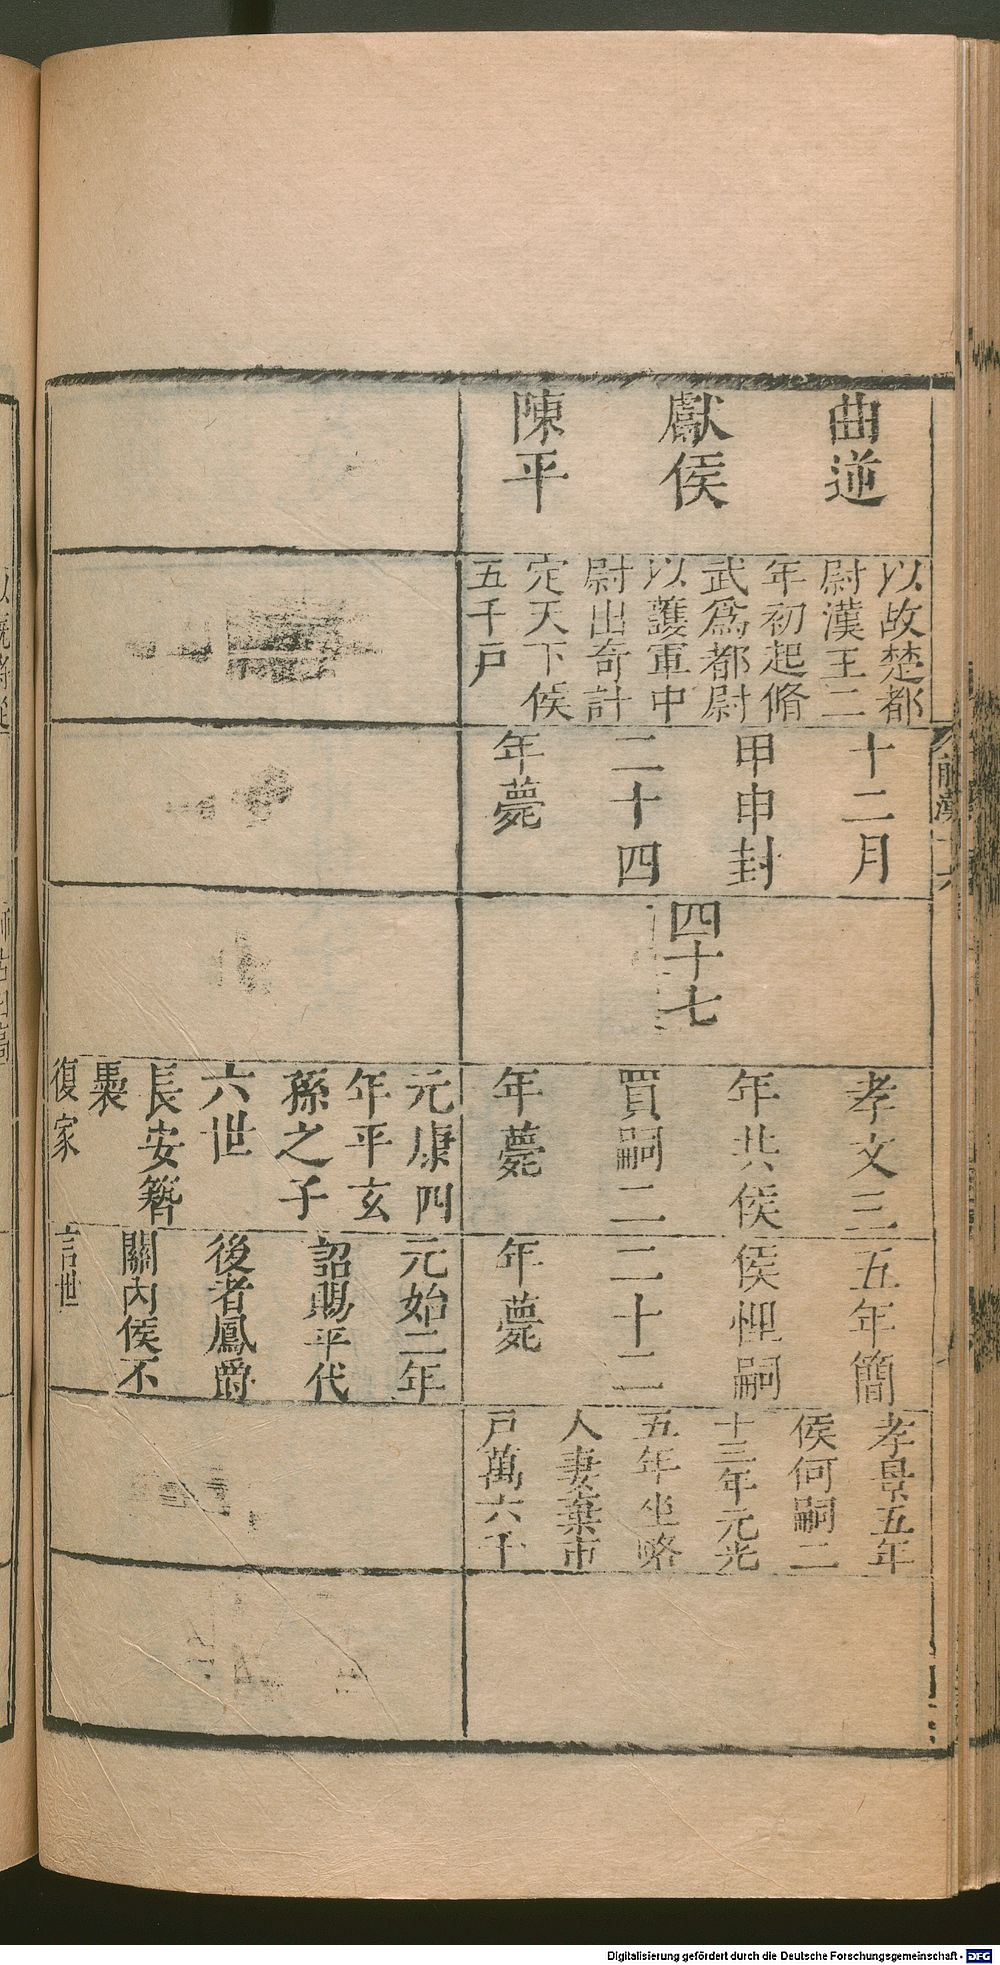 曲逆
獻侯
陳平
以故楚都
尉漢王二
年初起脩
武爲都尉
以護軍中
尉出奇計
定天下侯
五千戶
十二月
甲申封
二十四
年薨
四十七
孝文三
年共侯
買嗣二
年薨
五年簡
侯悝嗣
二十二
年薨
孝景五年
侯何嗣二
十三年元光
五年坐略
人妻棄市
戶萬六千
元康四
年平玄
孫之子
六世
長安簪
褭
復家
元始二年
詔賜平代
後者鳳爵
關內侯不
言世
前漢
Digitalisierung gefördert durch die Deutsche Forschungsgemeinschaft - DFG